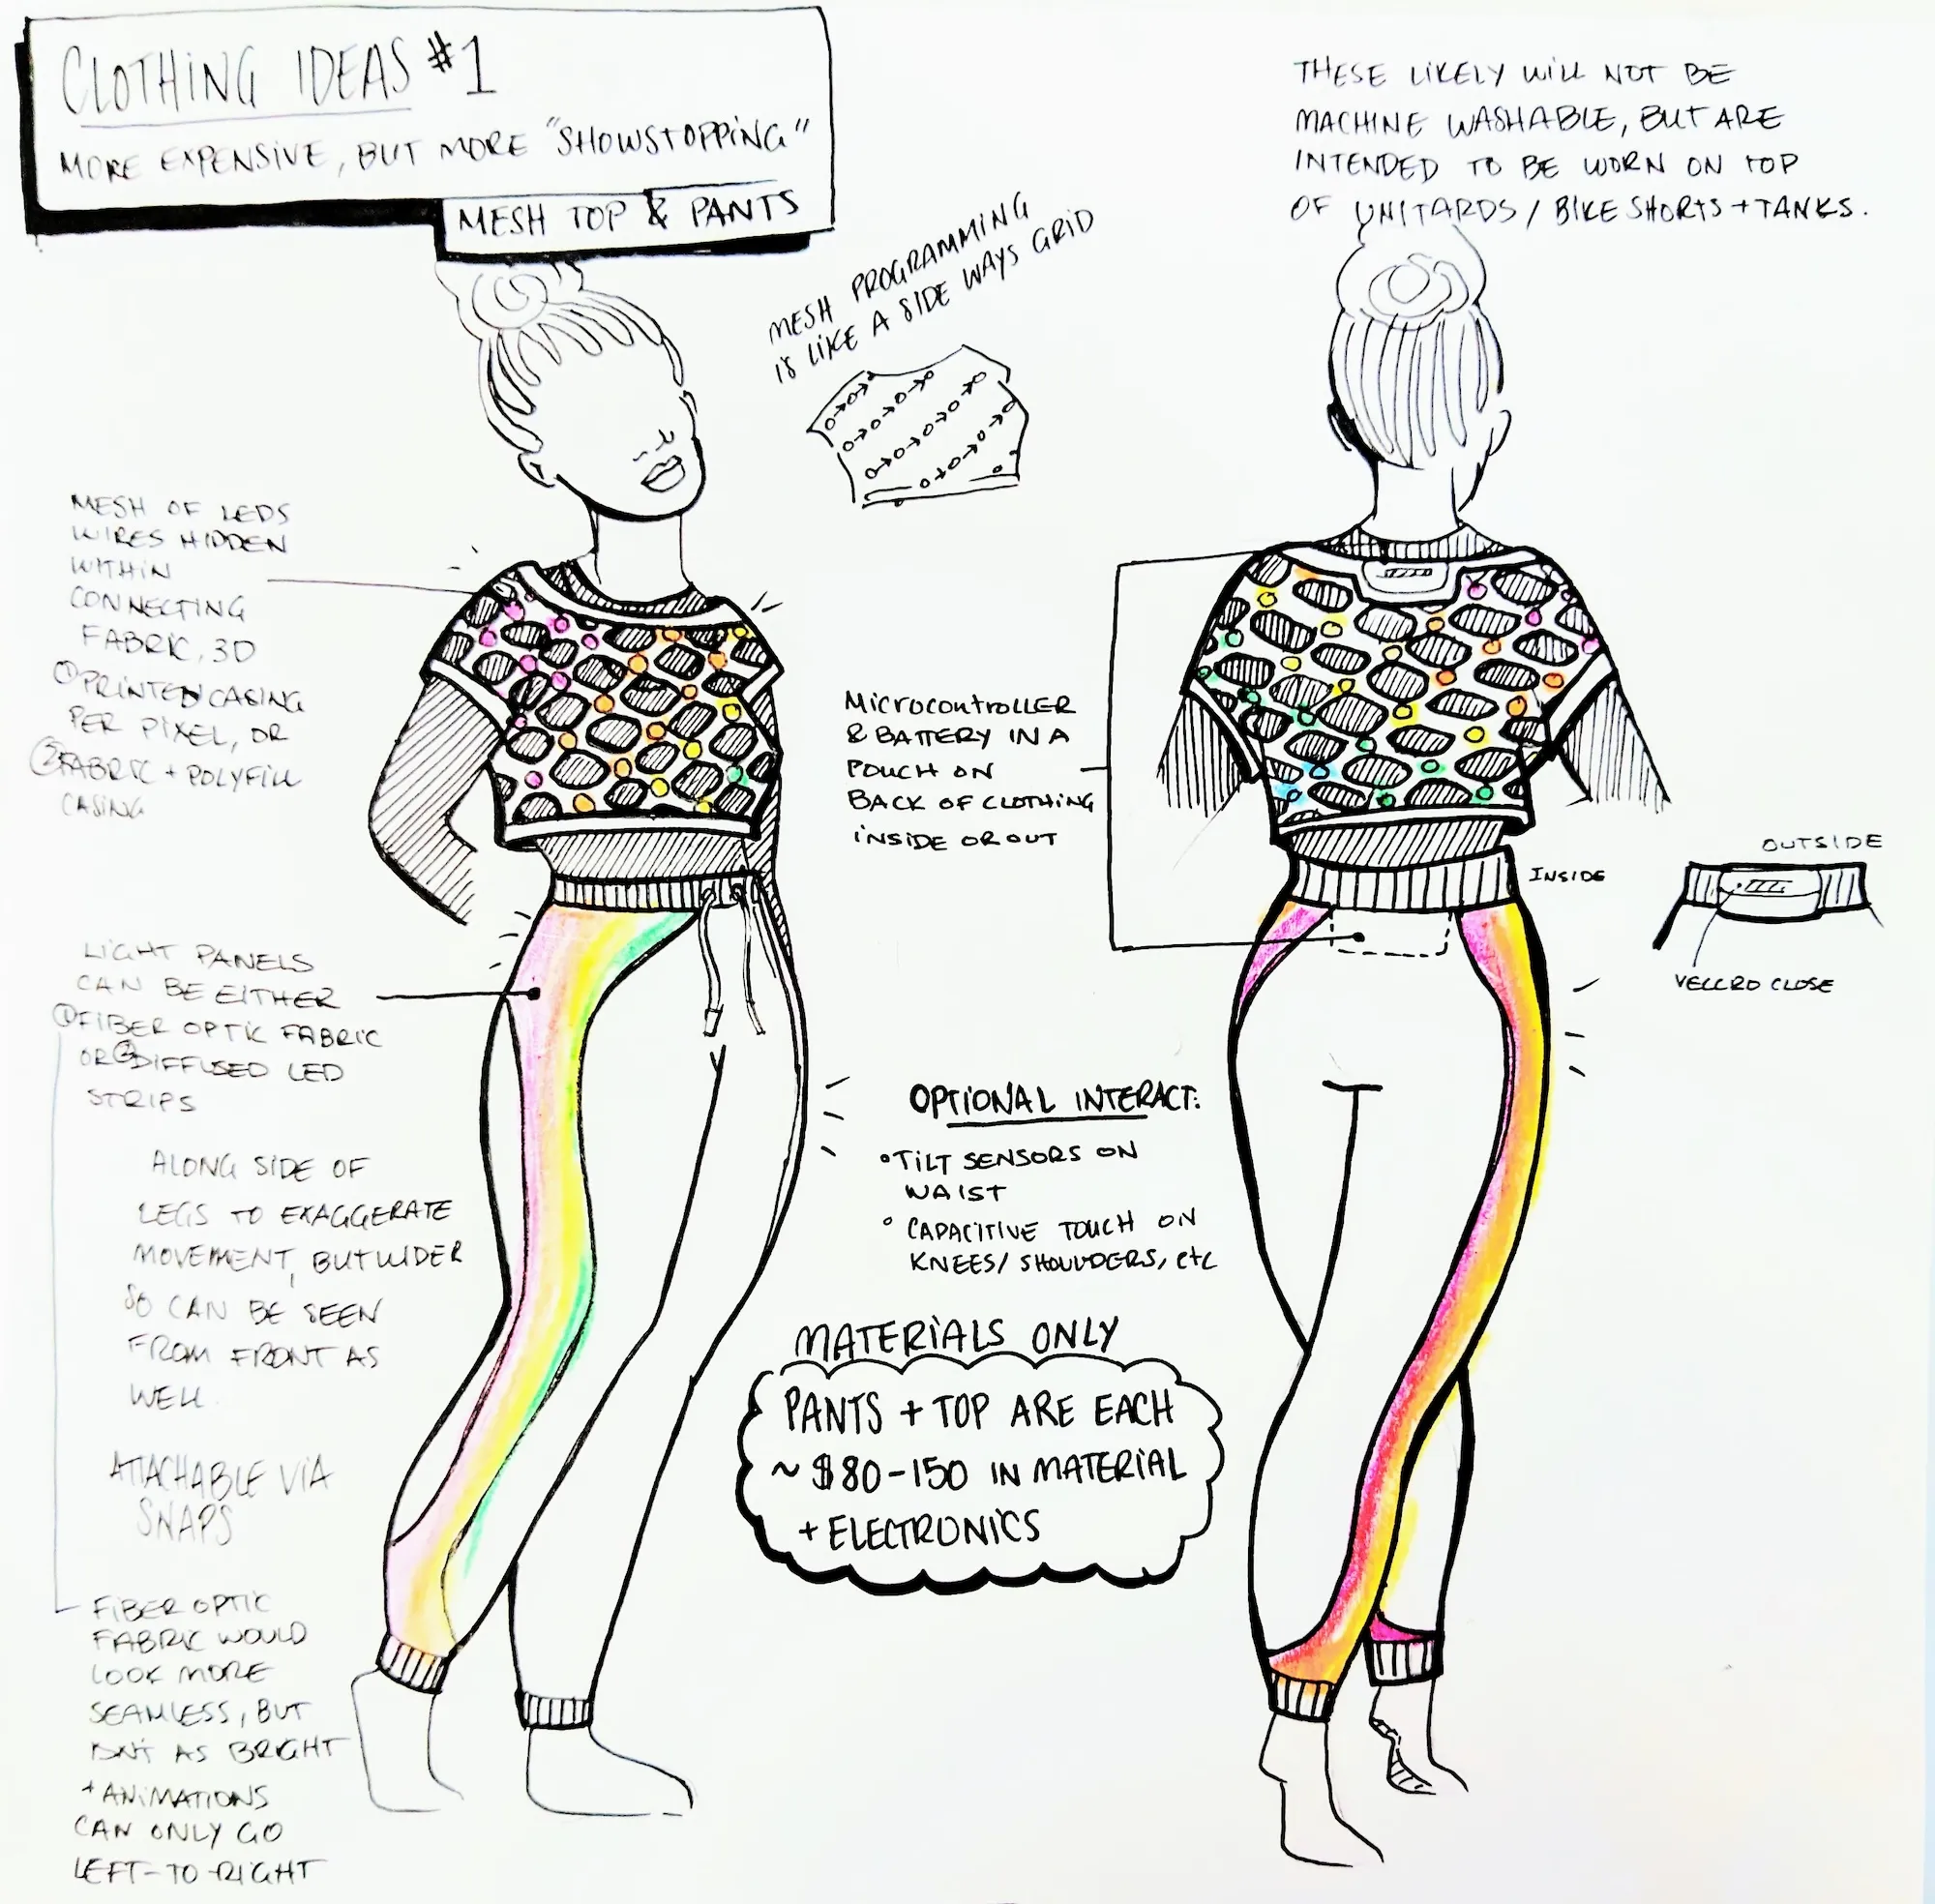 CLOTHING IDEAS #1
MORE EXPENSIVE, BUT MORE "SHOWSTOPPING"
MESH TOP & PANTS
THESE LIKELY WILL NOT BE
MACHINE WASHABLE, BUT ARE
INTENDED TO BE WORN ON TOP
OF UNITARDS / BIKE SHORTS + TANKS.
MESH PROGRAMMING
IS LIKE A SIDE WAYS GRID
MESH OF LEDS
WIRES HIDDEN
WITHIN
CONNECTING
FABRIC, 3D
① PRINTED CASING
PER PIXEL, OR
② FABRIC + POLYFILL
CASING
MICROCONTROLLER
& BATTERY IN A
POUCH ON
BACK OF CLOTHING
INSIDE OR OUT
INSIDE
OUTSIDE
VELCRO CLOSE
LIGHT PANELS
CAN BE EITHER
① FIBER OPTIC FABRIC
OR ② DIFFUSED LED
STRIPS
ALONG SIDE OF
LEGS TO EXAGGERATE
MOVEMENT, BUT WIDER
SO CAN BE SEEN
FROM FRONT AS
WELL.
ATTACHABLE VIA
SNAPS
FIBER OPTIC
FABRIC WOULD
LOOK MORE
SEAMLESS, BUT
ISN'T AS BRIGHT
+ ANIMATIONS
CAN ONLY GO
LEFT-TO-RIGHT
OPTIONAL INTERACT:
• TILT SENSORS ON
WAIST
• CAPACITIVE TOUCH ON
KNEES/ SHOULDERS, etc
MATERIALS ONLY
PANTS + TOP ARE EACH
~ $80-150 IN MATERIAL
+ ELECTRONICS